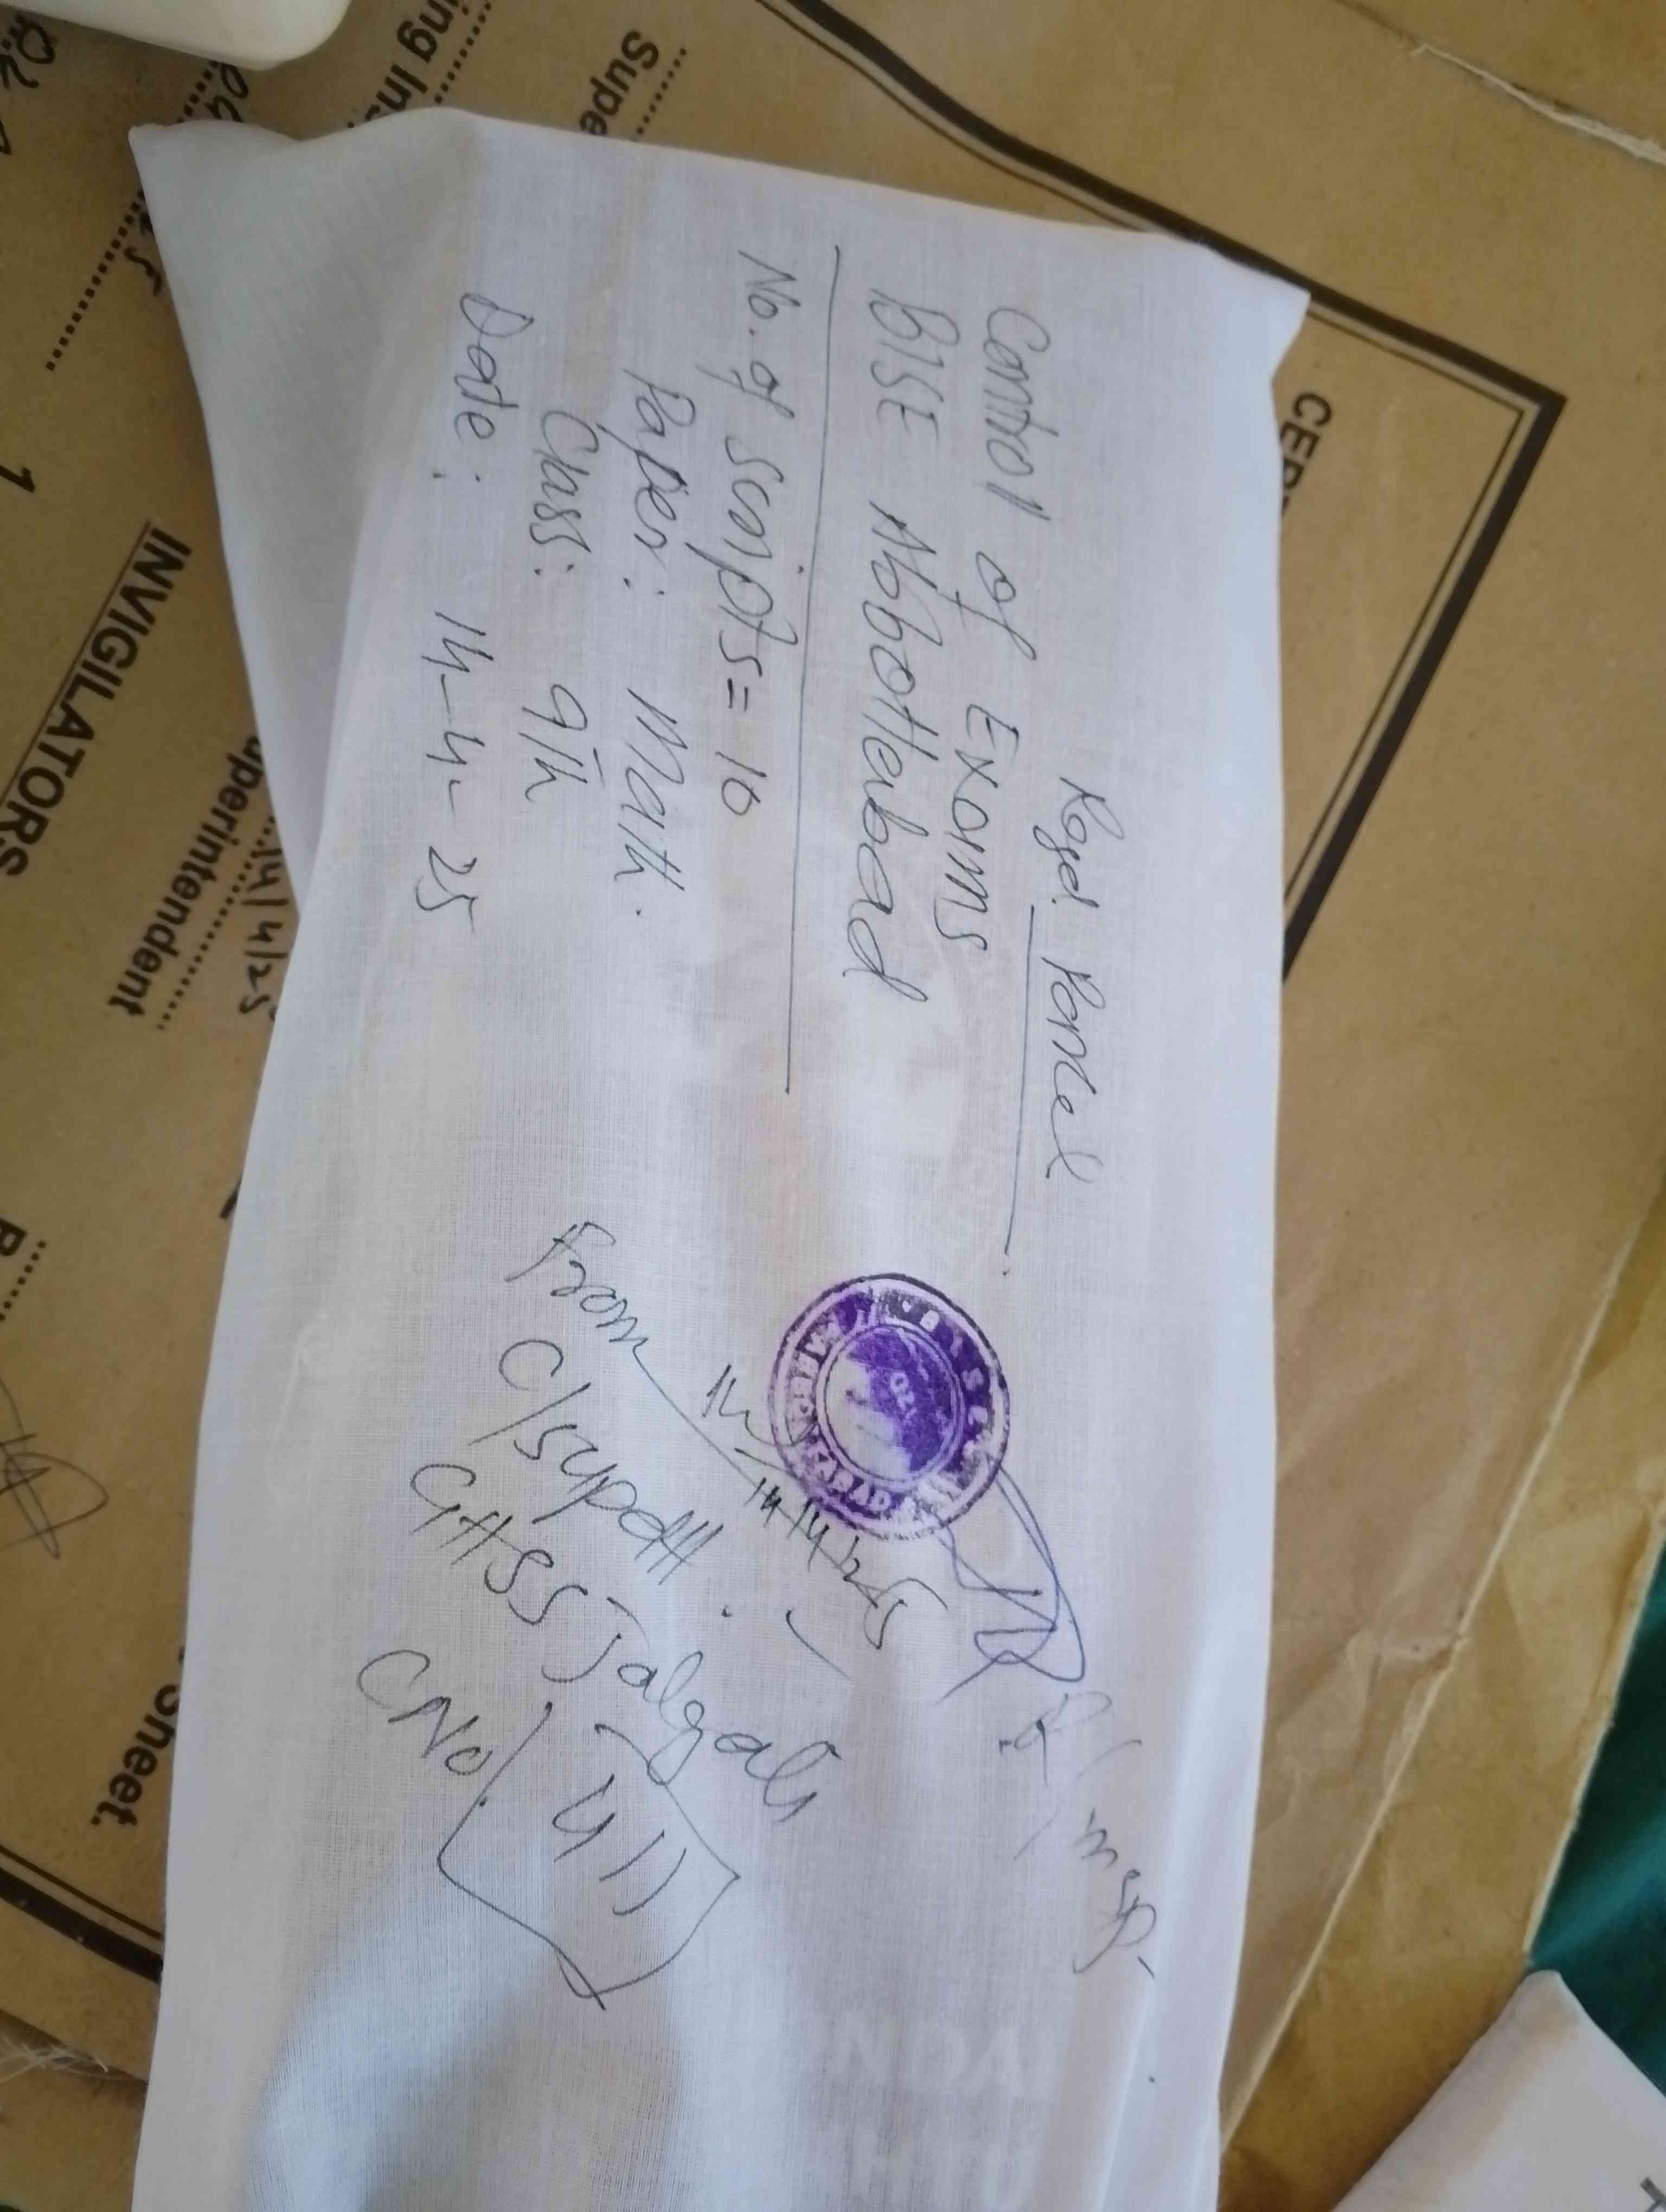 Regd. Parcel
Control of Exams
BISE Abbottabad
No. of scripts = 16
Paper: Math.
Class: 9th
Date: 14-4-25
From
14/4/25
C/Supdtt.
GHSS Jalgali
CNo. 411
CER
Supe
ing In
INVIGILATORS
1
14/4/25
uperintendent
Sheet.